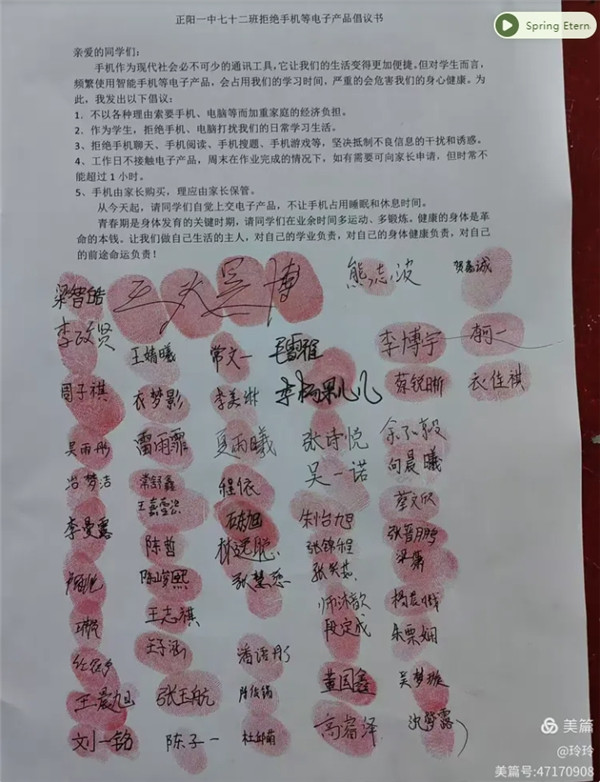 Spring Etern
正阳一中七十二班拒绝手机等电子产品倡议书
亲爱的同学们：
手机作为现代社会必不可少的通讯工具，它让我们的生活变得更加便捷。但对学生而言，
频繁使用智能手机等电子产品，会占用我们的学习时间，严重的会危害我们的身心健康。为
此，我发出以下倡议：
1、不以各种理由索要手机、电脑等而加重家庭的经济负担。
2、作为学生，拒绝手机、电脑打扰我们的日常学习生活。
3、拒绝手机聊天、手机阅读、手机搜题、手机游戏等，坚决抵制不良信息的干扰和诱惑。
4、工作日不接触电子产品，周末在作业完成的情况下，如有需要可向家长申请，但时常不
能超过 1 小时。
5、手机由家长购买，理应由家长保管。
从今天起，请同学们自觉上交电子产品，不让手机占用睡眠和休息时间。
青春期是身体发育的关键时期，请同学们在业余时间多运动、多锻炼。健康的身体是革
命的本钱。让我们做自己生活的主人，对自己的学业负责，对自己的身体健康负责，对自己
的前途命运负责！
梁智皓 熊志波 贺嘉诚
李政贤 王婧曦 常文一 毛雷雅 李博宇
周子祺 衣梦影 李美 蔡锐晰 衣佳祺
吴雨彤 雷雨霏 夏雨曦 张诗悦
吴一诺 向晨曦
程依 蔡文欣
李曼露 朱怡旭
陈茜 张锦程 梁
陈 熙 张慧
王志祺 段定成 朱栗娴
潘语彤
王晨旭 张玉航 董国鑫 吴梦璇
刘一铭 陈子一 高睿泽
美篇
@玲玲
美篇号:47170908